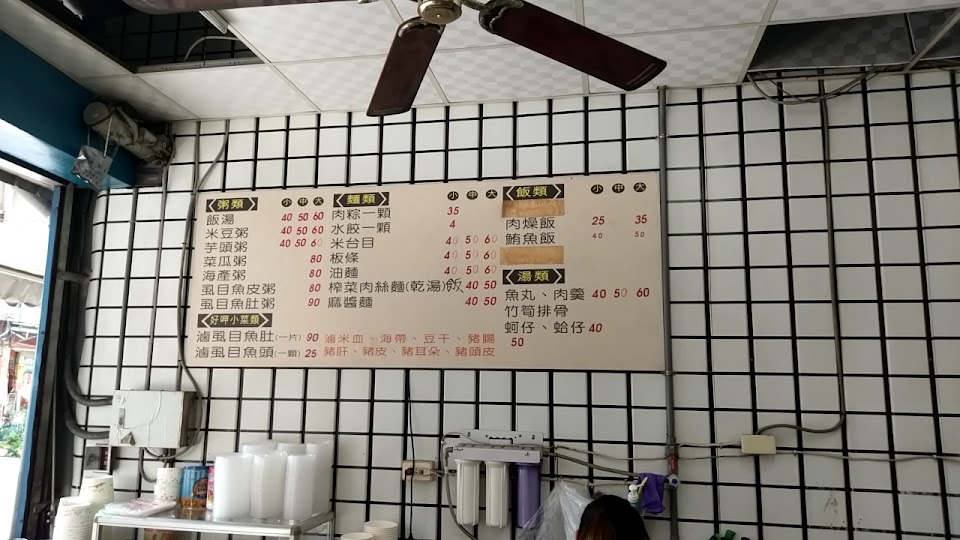 粥類 小 中 大
飯湯 40 50 60
米豆粥 40 50 60
芋頭粥 40 50 60
菜瓜粥 80
海產粥 80
虱目魚皮粥 80
虱目魚肚粥 90
好呷小菜類
滷虱目魚肚(一片) 90
滷虱目魚頭(一顆) 25
滷米血、海帶、豆干、豬腸
豬肝、豬皮、豬耳朵、豬頭皮
麵類 小 中 大
肉粽一顆 35
水餃一顆 4
米台目 40 50 60
板條 40 50 60
油麵 40 50 60
榨菜肉絲麵(乾湯)飯 40 50
麻醬麵 40 50
飯類 小 中 大
肉燥飯 25 35
鮪魚飯 40 50
湯類
魚丸、肉羹 40 50 60
竹筍排骨
蚵仔、蛤仔 40
50